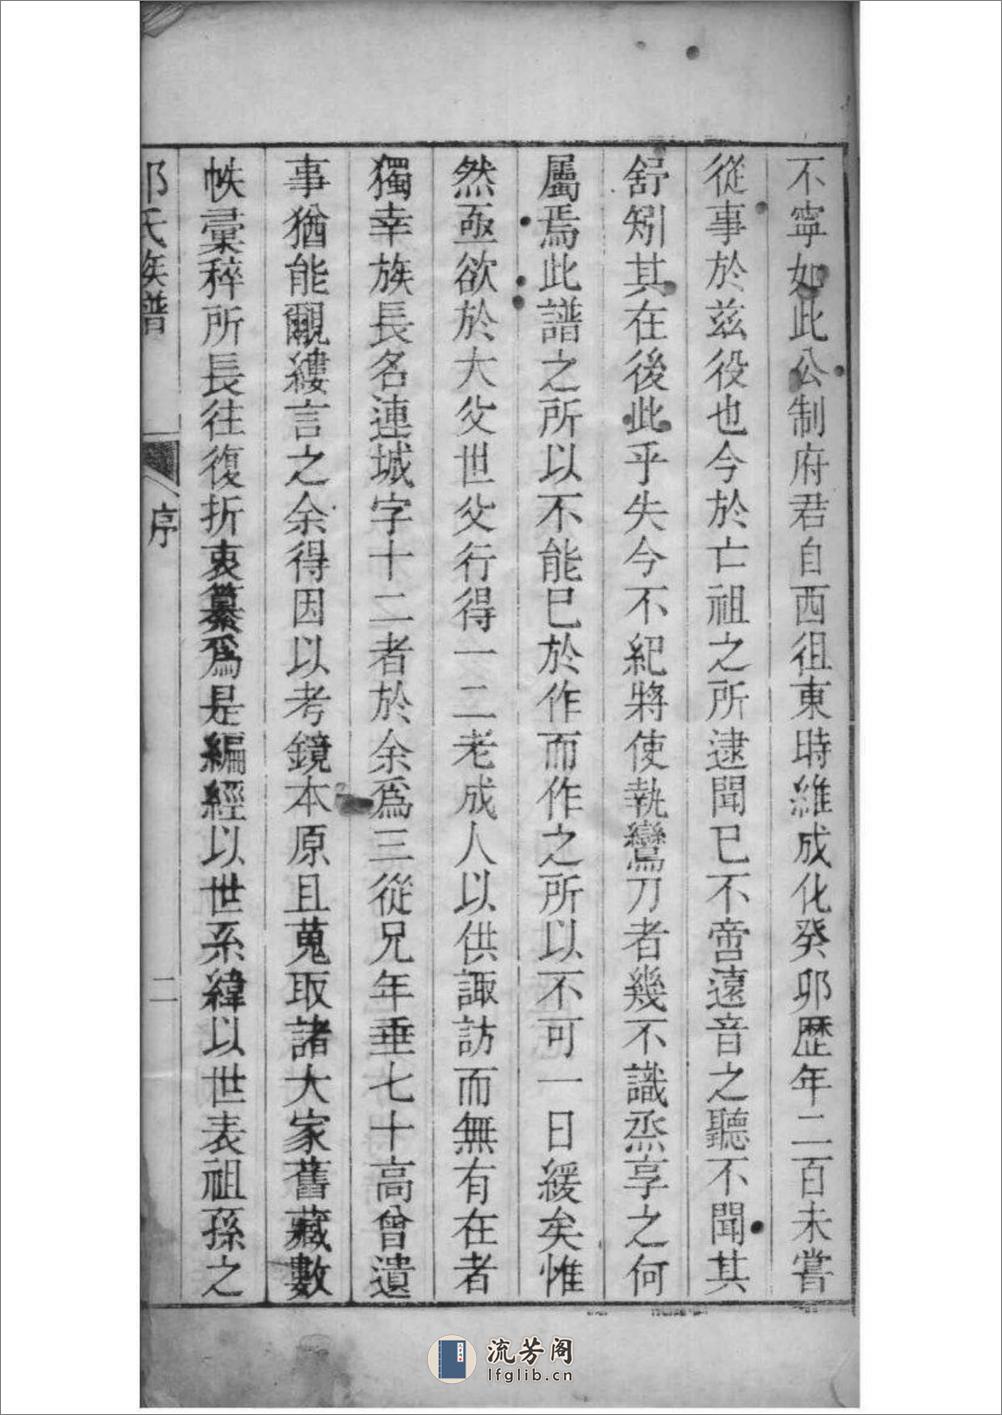 不寧如此公制府君自西徂東時維成化癸卯歷年二百未嘗
從事於茲役也今於亡祖之所逮聞已不啻遠音之聽不聞其
舒矧其在後此乎失今不紀將使執鸞刀者幾不識烝享之何
屬焉此譜之所以不能已於作而作之所以不可一日緩矣惟
然亟欲於大父世父行得一二老成人以供諏訪而無有在者
獨幸族長名連城字十二者於余爲三從兄年垂七十高曾遺
事猶能覼縷言之余得因以考鏡本原且蒐取諸大家舊藏數
帙彙稡所長往復折衷纂爲是編經以世系緯以世表祖孫之
氏族譜
序
二
流芳阁
lfglib.cn